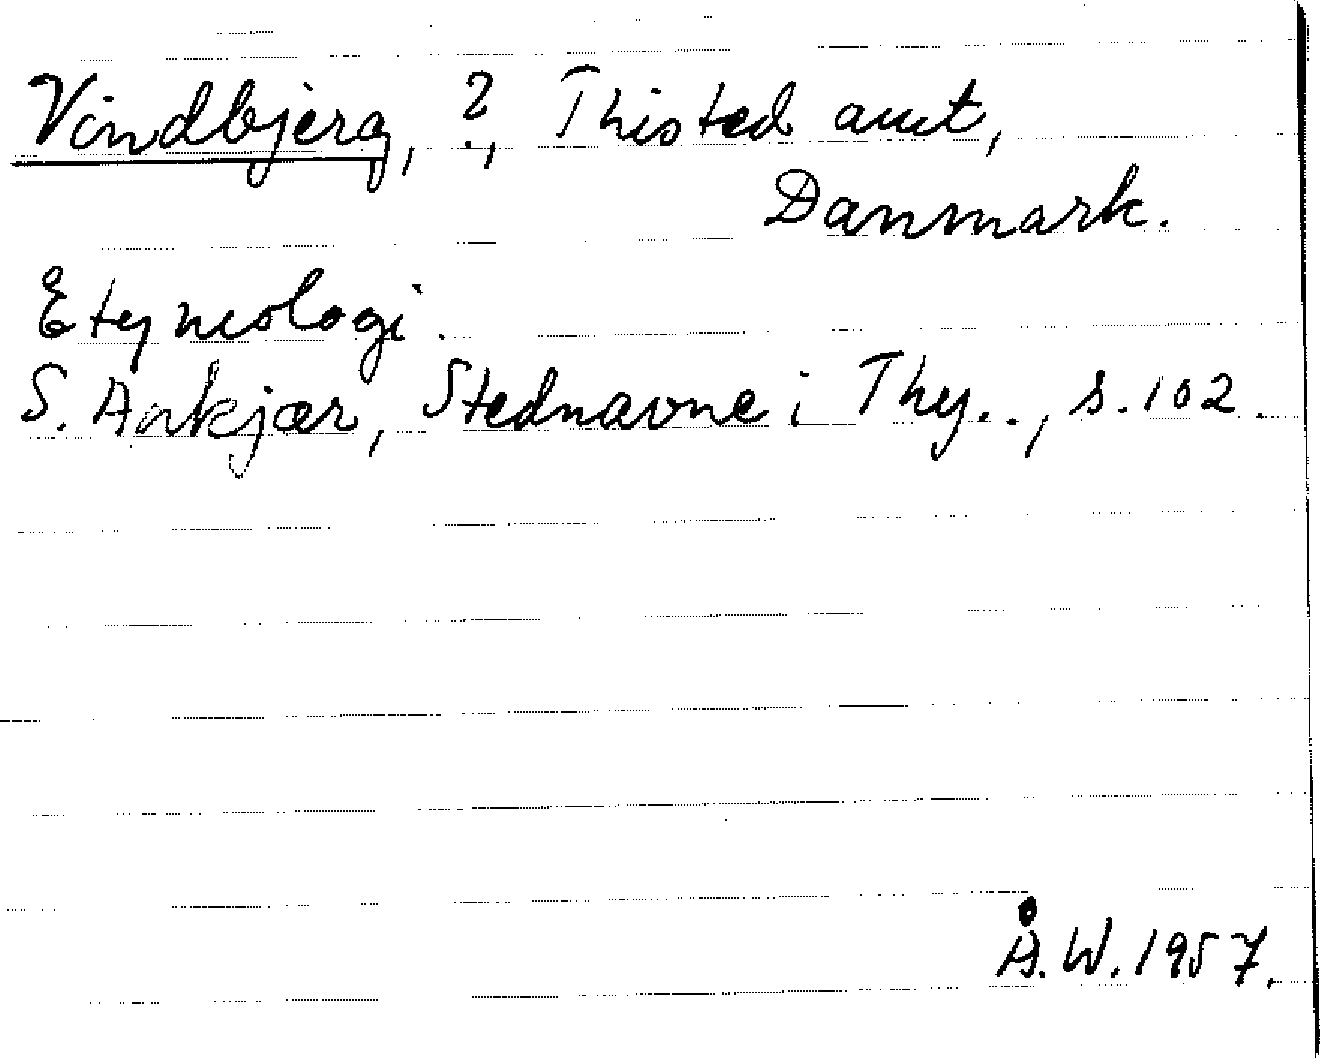 Vindbjerg, ?, Thisted amt,
Danmark.
Etymologi.
S. Aakjær, Stednavne i Thy.., s. 102.
Å. W. 1957.